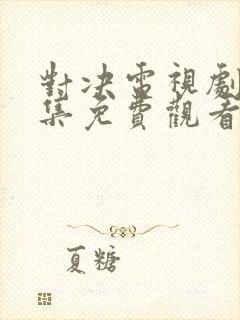 對決電視劇
集免費觀看
夏糖